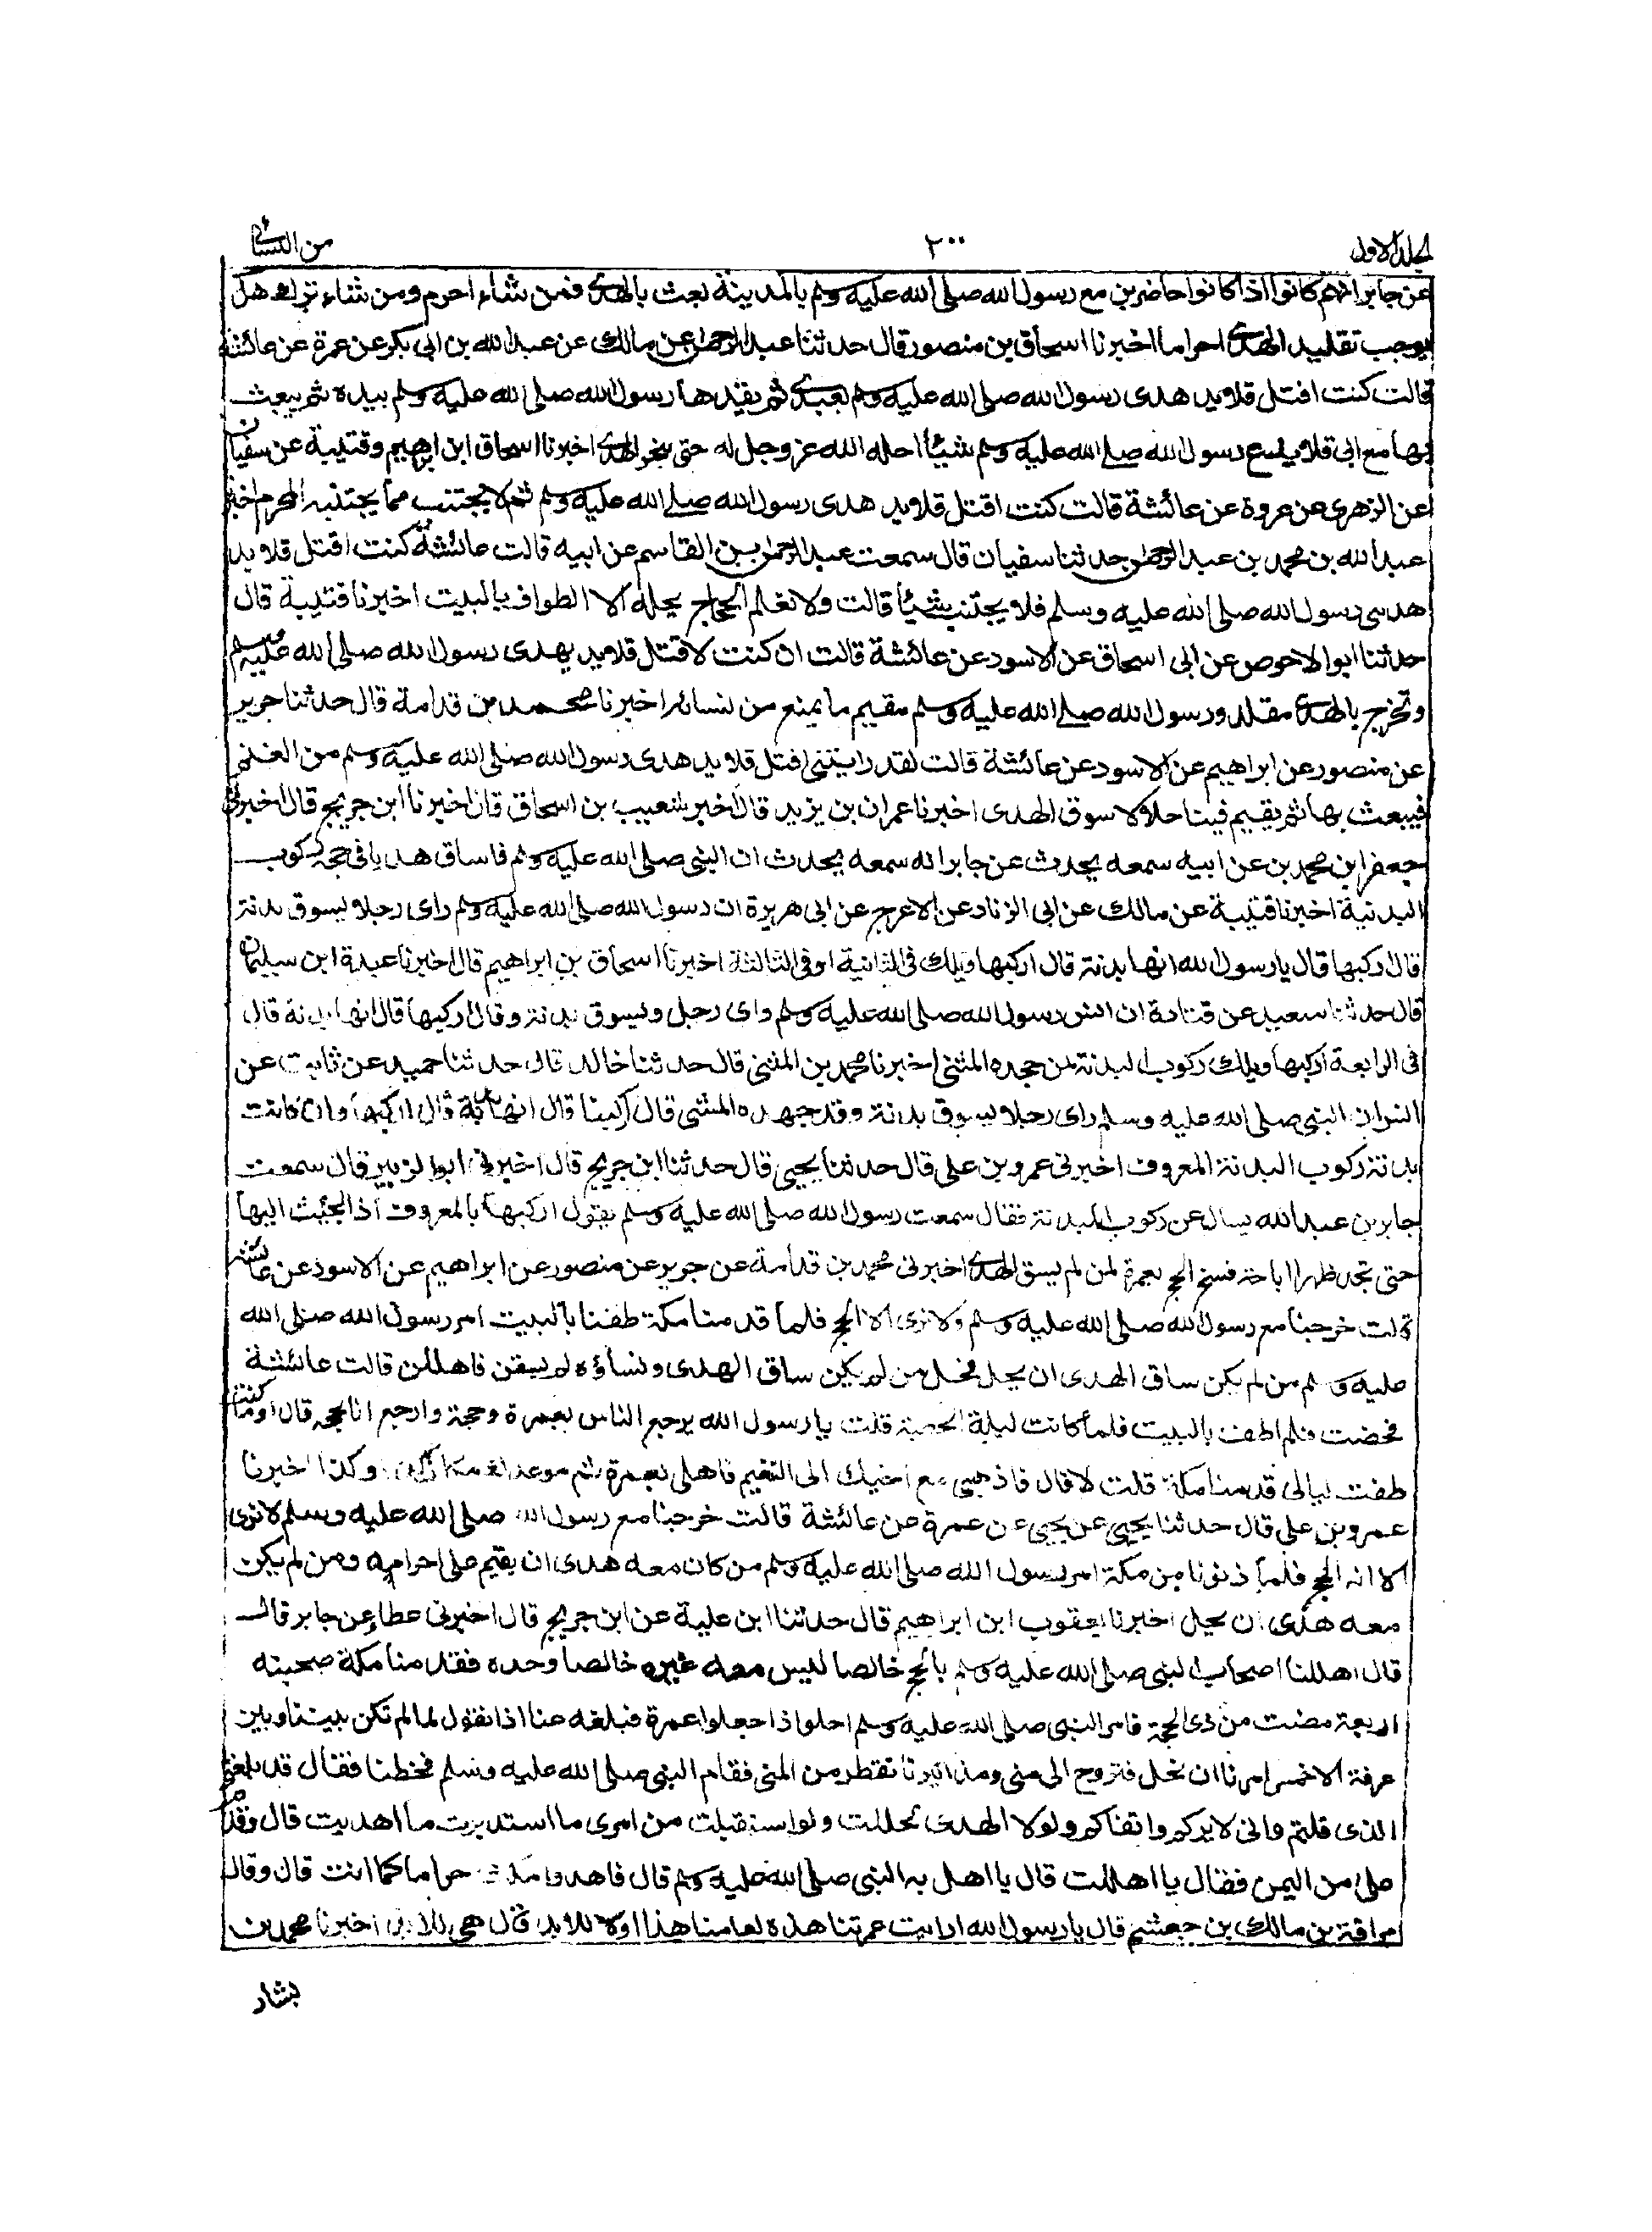 الجلد الاول
٢٠٠
من النسائي
عن جابر انهم كانوا اذا كانوا حاضرين مع رسول الله صلى الله عليه وسلم بالمدينة بعث بالهدى فمن شاء احرم ومن شاء ترك هل
يوجب تقليد الهدى احراما اخبرنا اسحاق بن منصور قال حدثنا عبد الرحمن عن مالك عن عبد الله بن ابى بكر عن عمرة عن عائشة
قالت كنت افتل قلايد هدى رسول الله صلى الله عليه وسلم بيدى ثم يقلدها رسول الله صلى الله عليه وسلم بيده ثم يبعث
بها مع ابى فلا يدع رسول الله صلى الله عليه وسلم شيئا احله الله عز وجل له حتى ينحر الهدى اخبرنا اسحاق ابن ابراهيم وقتيبة عن سفيان
عن الزهرى عن عروة عن عائشة قالت كنت افتل قلايد هدى رسول الله صلى الله عليه وسلم ثم لا يجتنب مما يجتنبه المحرم اخبرنا
عبد الله بن محمد بن عبد الرحمن حدثنا سفيان قال سمعت عبد الرحمن بن القاسم عن ابيه قالت عائشة كنت افتل قلايد
هدى رسول الله صلى الله عليه وسلم فلا يجتنب شيئا قالت ولا نعلم الحجاج يحله الا الطواف بالبيت اخبرنا قتيبة قال
حدثنا ابو الاحوص عن ابى اسحاق عن الاسود عن عائشة قالت ان كنت لافتل قلايد بهدى رسول الله صلى الله عليه وسلم
وتخرج بالهدى مقلد ورسول الله صلى الله عليه وسلم مقيم ما يمنع من نسائه اخبرنا محمد بن قدامة قال حدثنا جرير
عن منصور عن ابراهيم عن الاسود عن عائشة قالت لقد رايتنى افتل قلايد هدى رسول الله صلى الله عليه وسلم من الغنم
فيبعث بها ثم يقيم فينا حلالا سوق الهدى اخبرنا عمران بن يزيد قال اخبر شعيب بن اسحاق قال اخبرنا ابن جريج قال اخبرنى
جعفر ابن محمد بن عن ابيه سمعه يحدث عن جابر انه سمعه يحدث ان النبى صلى الله عليه وسلم فاساق هديا فى حجه ركوب
البدنية اخبرنا قتيبة عن مالك عن ابى الزناد عن الاعرج عن ابى هريرة ان رسول الله صلى الله عليه وسلم راى رجلا يسوق بدنة
قال ركبها قال يا رسول الله انها بدنة قال اركبها ويلك فى الثانية او فى الثالثة اخبرنا اسحاق بن ابراهيم قال اخبرنا عبدة ابن سليمان
قال حدثنا سعيد عن قتادة ان انس رسول الله صلى الله عليه وسلم راى رجل ويسوق بدنة وقال اركبها قال انها بدنة قال
فى الرابعة اركبها ويلك ركوب البدنة لمن جهده المثنى اخبرنا محمد بن المثنى قال حدثنا خالد قال حدثنا حميد عن ثابت عن
انس ان النبى صلى الله عليه وسلم راى رجلا يسوق بدنة وقد جهده المشى قال اركبها قال انها بدنة قال اركبها وان كانت
بدنة ركوب البدنة المعروف اخبرنى عمرو بن على قال حدثنا يحيى قال حدثنا ابن جريج قال اخبرنى ابو الزبير قال سمعت
جابر بن عبد الله يسال عن ركوب البدنة فقال سمعت رسول الله صلى الله عليه وسلم يقول اركبها بالمعروف اذا الجئت اليها
حتى تجد ظهرا اباحة فسخ الحج بعمرة لمن لم يسق الهدى اخبرنى محمد بن قدامة عن جرير عن منصور عن ابراهيم عن الاسود عن عائشة
قالت خرجنا مع رسول الله صلى الله عليه وسلم ولا نرى الا الحج فلما قدمنا مكة طفنا بالبيت امر رسول الله صلى الله
عليه وسلم من لم يكن ساق الهدى ان يحل فحل من لم يكن ساق الهدى ونساؤه لم يسقن فاهللن قالت عائشة
فحضت فلم اطف بالبيت فلما كانت ليلة الحصبة قلت يا رسول الله يرجع الناس بعمرة وحجة وارجع انا بحجة قال او ما كنت
طفت ليالى قدمنا مكة قلت لا قال فاذهبى مع اخيك الى التنعيم فاهلى بعمرة ثم موعدك مكان كذا وكذا اخبرنا
عمرو بن على قال حدثنا يحيى عن يحيى عن عمرة عن عائشة قالت خرجنا مع رسول الله صلى الله عليه وسلم لا نرى
الا انه الحج فلما ذنونا من مكة امر رسول الله صلى الله عليه وسلم من كان معه هدى ان يقيم على احرامه ومن لم يكن
معه هدى ان يحل اخبرنا يعقوب ابن ابراهيم قال حدثنا ابن علية عن ابن جريج قال اخبرنى عطاء عن جابر قال
قال اهللنا اصحاب النبى صلى الله عليه وسلم بالحج خالصا ليس معه غيره خالصا وحده فقدمنا مكة صحبيته
اربعة مضت من ذى الحجة فامر النبى صلى الله عليه وسلم احلوا ذا جعلوا عمرة فبلغه عنا اذا نقول لما لم تكن بيننا وبين
عرفة الا خمس امرنا ان نحل فتروح الى منى ومذاكيرنا تقطر من المنى فقام النبى صلى الله عليه وسلم فخطنا فقال قد بلغنى
الذى قلتم وانى لابركم واتقاكم ولولا الهدى تحللت ولو استقبلت من امرى ما استدبرت ما اهديت قال وقدم
على من اليمن فقال يا اهللت قال يا اهل به النبى صلى الله عليه وسلم قال فاهد وامكث حراما كما انت قال وقال
سراقة بن مالك بن جعشم قال يا رسول الله ارايت عمرتنا هذه لعامنا هذا او للابد قال هى للابد اخبرنا محمد بن
بشار